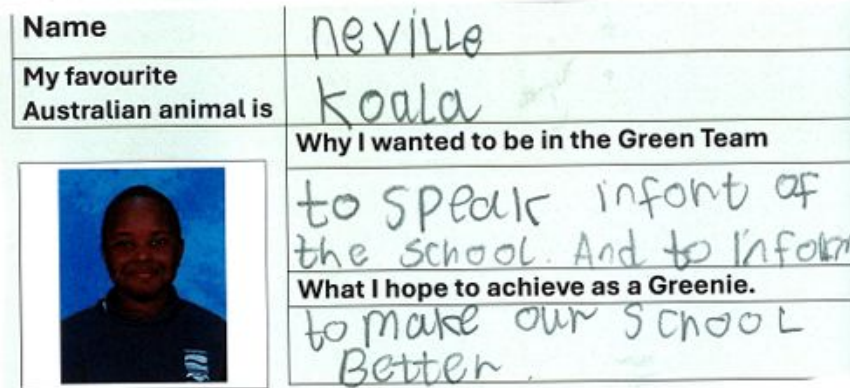 Name
neville
My favourite
Australian animal is
koala
Why I wanted to be in the Green Team
to speak infont of
the school. And to Inform
What I hope to achieve as a Greenie.
to make our school
Better.